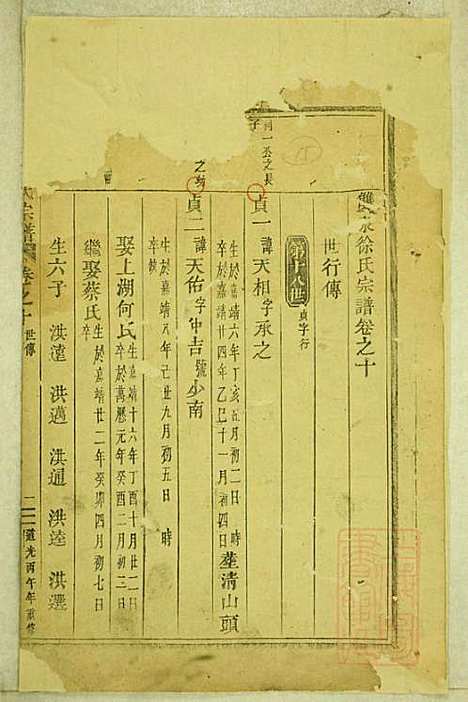 泉徐氏宗譜卷之十
世行傳
第十八世 貞字行
丙一丞之長
子
貞一 諱天相字承之
生於嘉靖六年丁亥五月初二日 時
卒於嘉靖廿四年乙巳十一月初四日 塟清山頭
貞二 諱天佑字中吉號少南
生於嘉靖八年己丑九月初五日 時
卒於
娶上湖何氏 生於嘉靖十六年丁酉十月廿二日
卒於萬曆元年癸酉二月初三日
繼娶蔡氏 生於嘉靖廿二年癸卯四月初七日
卒
生六子 洪達 洪邁 洪通 洪逵 洪選
氏宗譜 卷之十 世傳 一 道光丙午年重修